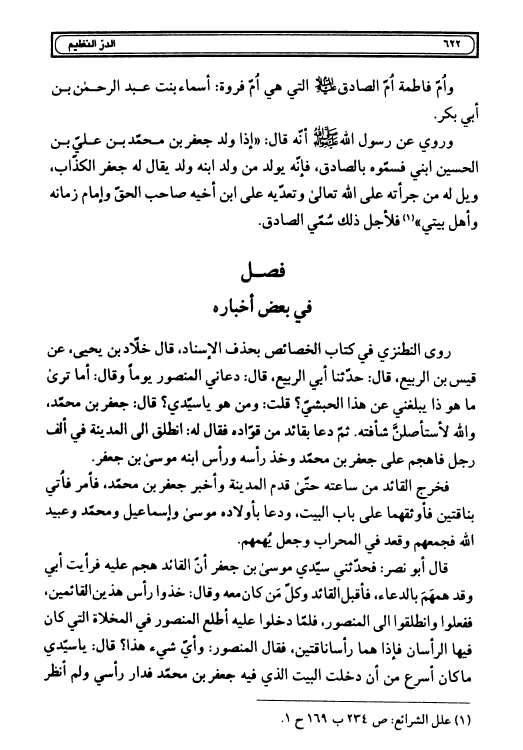 ٦٢٢ الدرّ النظيم
وأُمّ فاطمة أُمّ الصادق عليه السلام التي هي أُمّ فروة: أسماء بنت عبد الرحمٰن بن
أبي بكر.
وروي عن رسول الله ﷺ أنّه قال: «إذا ولد جعفر بن محمّد بن عليّ بن
الحسين ابني فسمّوه بالصادق، فإنّه يولد من ولد ابنه ولد يقال له جعفر الكذّاب،
ويل له من جرأته على الله تعالىٰ وتعدّيه على ابن أخيه صاحب الحقّ وإمام زمانه
وأهل بيتي»(١) فلأجل ذلك سُمّي الصادق.
فصل
في بعض أخباره
روى النطنزي في كتاب الخصائص بحذف الإسناد، قال خلّاد بن يحيى، عن
قيس بن الربيع، قال: حدّثنا أبي الربيع، قال: دعاني المنصور يوماً وقال: أما ترىٰ
ما هو ذا يبلغني عن هذا الحبشيّ؟ قلت: ومن هو ياسيّدي؟ قال: جعفر بن محمد،
والله لأستأصلنّ شأفته. ثمّ دعا بقائد من قوّاده فقال له: انطلق الى المدينة في ألف
رجل فاهجم على جعفر بن محمد وخذ رأسه ورأس ابنه موسىٰ بن جعفر.
فخرج القائد من ساعته حتّىٰ قدم المدينة وأخبر جعفر بن محمد، فأمر فأتي
بناقتين فأوثقهما على باب البيت، ودعا بأولاده موسىٰ وإسماعيل ومحمد وعبيد
الله فجمعهم وقعد في المحراب وجعل يُهمهم.
قال أبو نصر: فحدّثني سيّدي موسىٰ بن جعفر أنّ القائد هجم عليه فرأيت أبي
وقد همهَمَ بالدعاء، فأقبل القائد وكلّ مَن كان معه وقال: خذوا رأس هذين القائمين،
ففعلوا وانطلقوا الى المنصور، فلمّا دخلوا عليه أطلع المنصور في المخلاة التي كان
فيها الرأسان فإذا هما رأساناقتين، فقال المنصور: وأيّ شيء هذا؟ قال: ياسيّدي
ماكان أسرع من أن دخلت البيت الذي فيه جعفر بن محمد فدار رأسي ولم أنظر
(١) علل الشرائع: ص ٢٣٤ ب ١٦٩ ح ١.